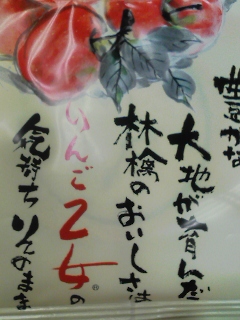 豊かな
大地が育んだ
林檎のおいしさは
りんご乙女の
気持ちりんのまま